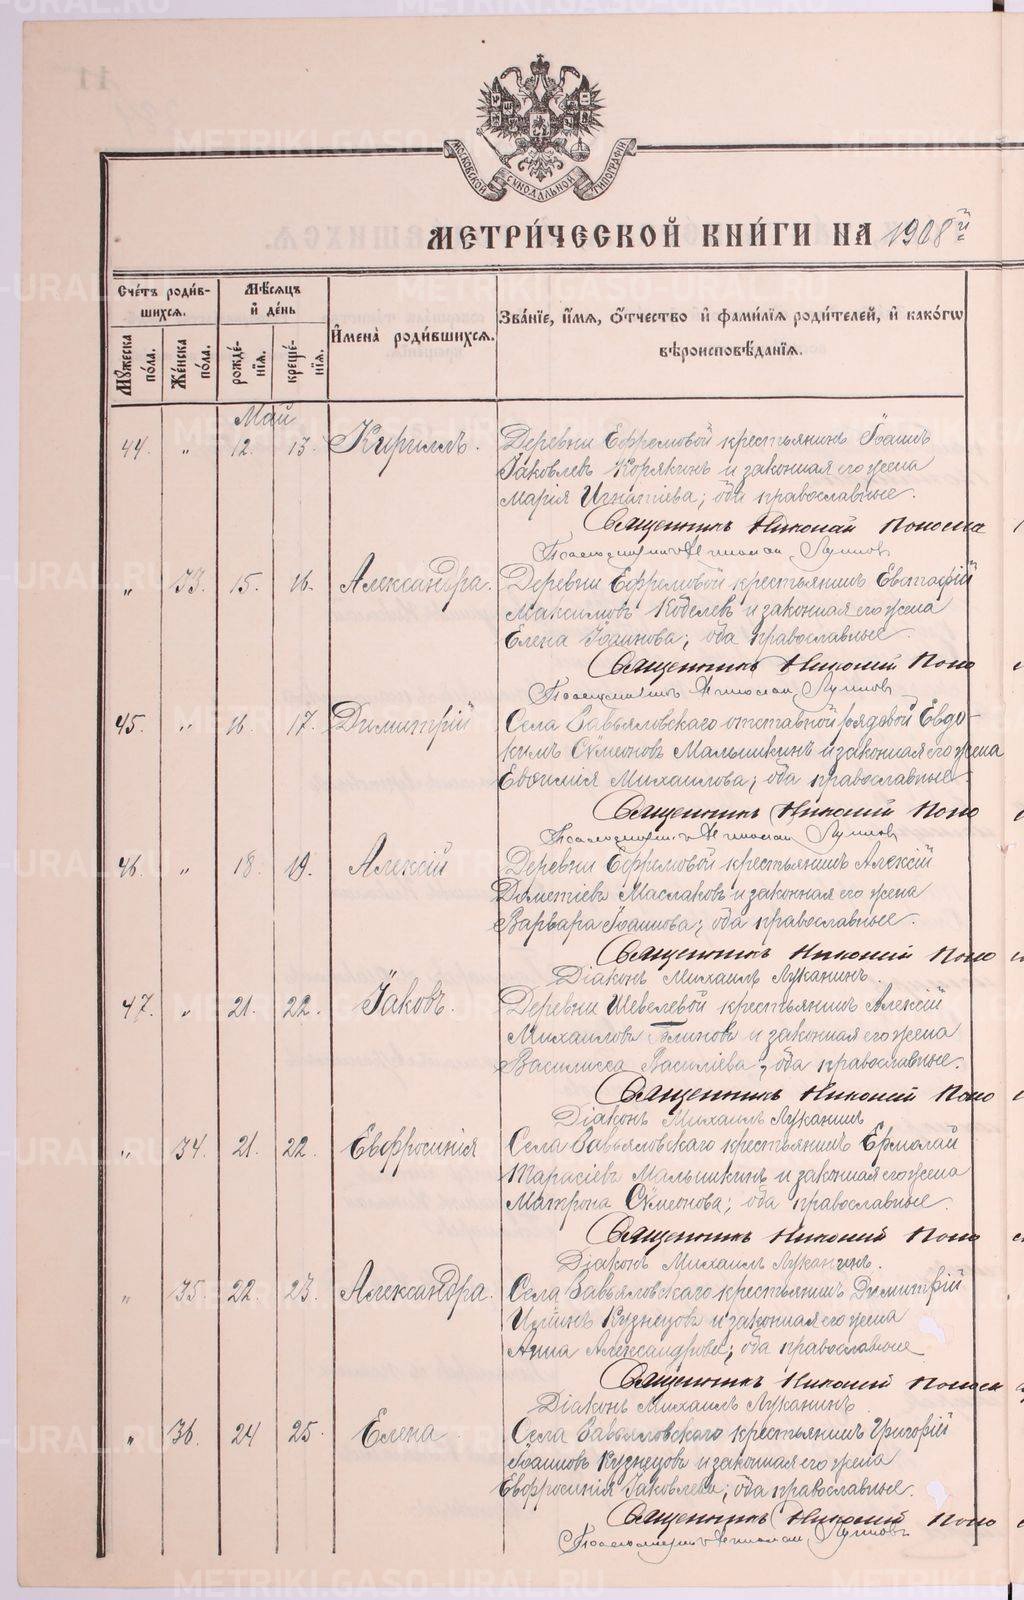 МОСКОВСКОЙ СѴНОДАЛЬНОЙ ТИПОГРАФІИ
МЕТРИ́ЧЕСКОЙ КНИ́ГИ НА 1908й
Сче́тъ роди́вшихся.
Мѣ́сяцъ и҆ де́нь
И҆мена̀ роди́вшихся.
Зва́нїе, и҆́мѧ, ѻ҆́тчество и҆ фами́лїѧ роди́телей, и҆ како́гѡ вѣроисповѣ́данїѧ.
Мꙋ́жеска по́ла.
Же́нска по́ла.
рожде́нїѧ.
креще́нїѧ.
Май
44. " 12. 13. Кириллъ. Деревни Ефремовой крестьянинъ Іоаннъ
Іаковлевъ Корякинъ и законная его жена
Марія Игнатіева; оба православные.
Священникъ Николай
" 33. 15. 16. Александра. Деревни Ефремовой крестьянинъ Евстафій
Максимовъ Кобелевъ и законная его жена
Елена Іоаннова; оба православные.
Священникъ Николай Попо
45. " 16. 17. Димитрій Села Завьяловскаго отставной рядовой Евдо-
кимъ Сѵмеоновъ Малышкинъ и законная его жена
Евѳимія Михаилова; оба православные.
Священникъ Николай Попо
46. " 18. 19. Алексій Деревни Ефремовой крестьянинъ Алексій
Дометіевъ Маслаковъ и законная его жена
Варвара Іоаннова; оба православные.
Священникъ Николай Попо
Діаконъ Михаилъ Луканинъ.
47. " 21. 22. Іаковъ. Деревни Шевелевой крестьянинъ Алексій
Михаиловъ Блиновъ и законная его жена
Василисса Василіева; оба православные.
Священникъ Николай Попо
Діаконъ Михаилъ Луканинъ
" 34. 21. 22. Евфросинія Села Завьяловскаго крестьянинъ Ермолай
Тарасіевъ Малышкинъ и законная его жена
Матрона Сѵмеонова; оба православные.
Священникъ Николай Попо
Діаконъ Михаилъ Луканинъ.
" 35. 22. 23. Александра. Села Завьяловскаго крестьянинъ Димитрій
Иліинъ Кузнецовъ и законная его жена
Анна Александрова; оба православные
Священникъ Николай
Діаконъ Михаилъ Луканинъ
" 36. 24 25. Елена. Села Завьяловскаго крестьянинъ Григорій
Іоанновъ Кузнецовъ и законная его жена
Евфросинія Іаковлева; оба православные.
Священникъ Николай Попо
METRIKI.GASO-URAL.RU